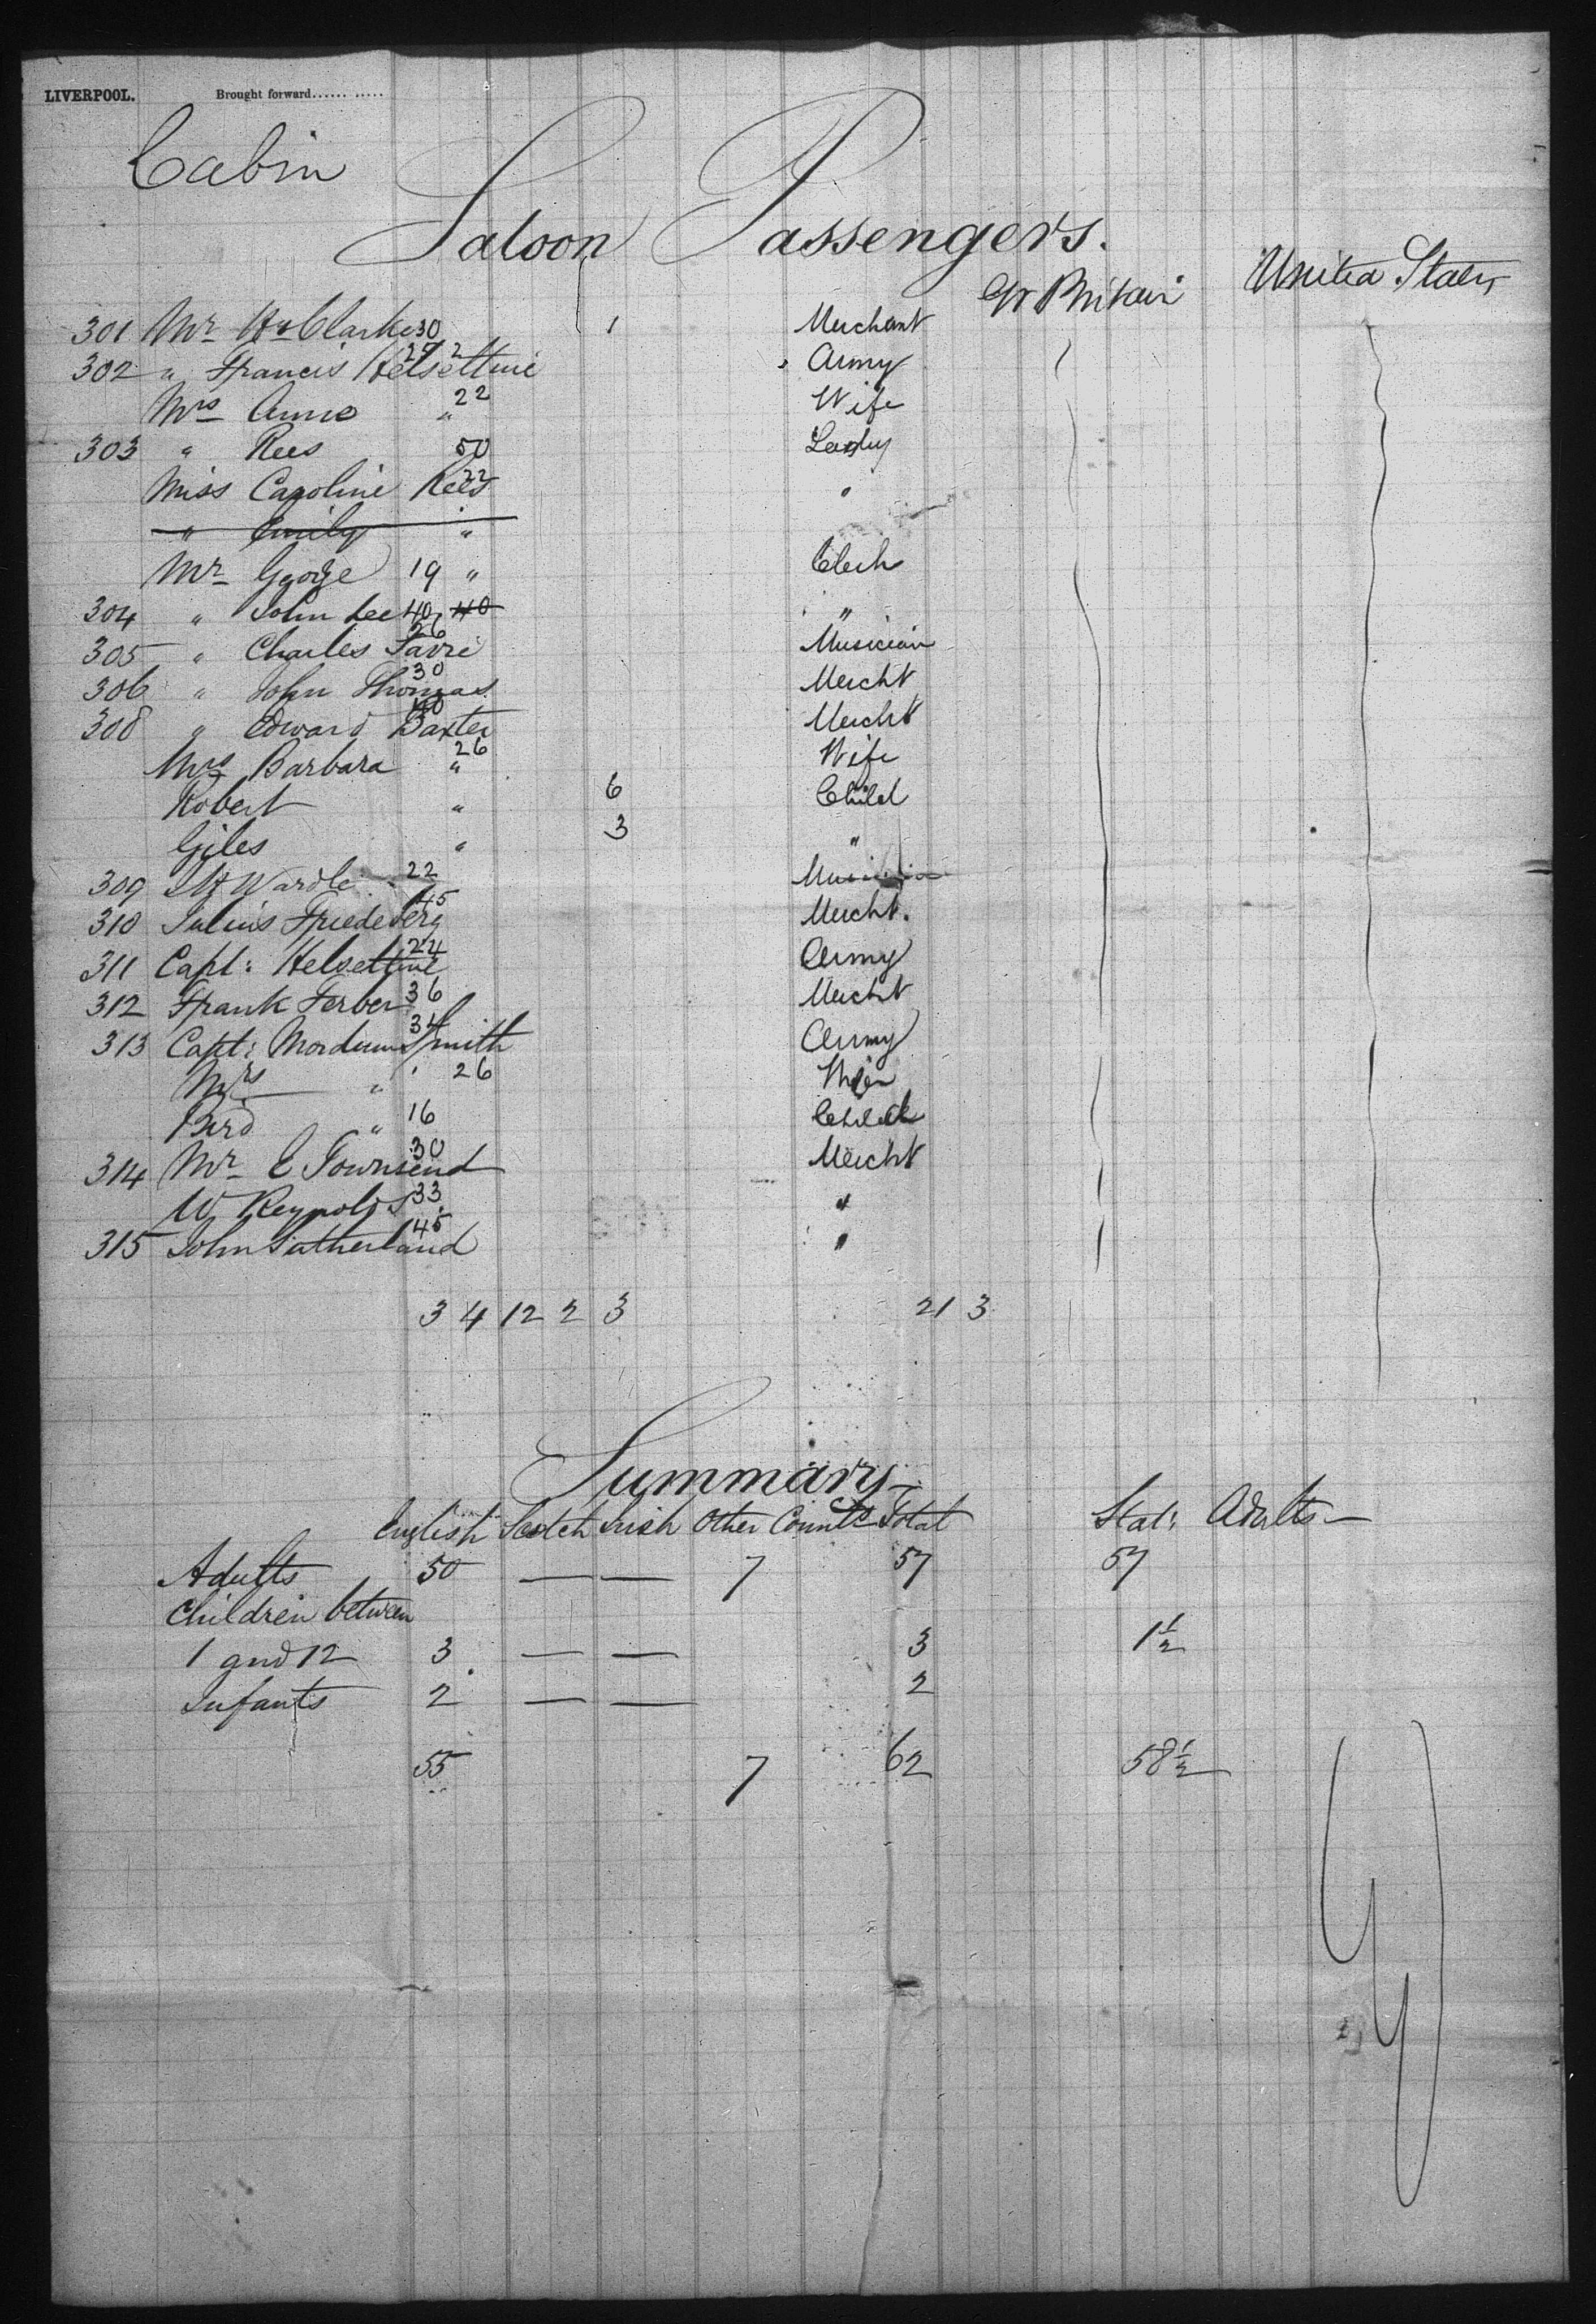 LIVERPOOL. Brought forward...... .....
Cabin
Saloon Passengers.
Gt Britain United States
301 Mr Hy Clarke 30 1 Merchant
302 " Francis Helsettine 27 Army
Mrs Annie " 22 Wife
303 " Rees 50 Lady
Miss Caroline Rees 22 "
" Emily "
Mr George 19 " Clerk
304 " John Lee 40 40 "
305 " Charles Favre 26 Musician
306 " John Thomas 30 Mercht
308 " Edward Baxter 40 Mercht
Mrs Barbara " 26 Wife
Robert " 6 Child
Giles " 3 "
309 Wardle 22 Musician
310 Julius Friedeberg 45 Mercht.
311 Capt: Helsettine 24 Army
312 Frank Ferber 36 Mercht
313 Capt: Smith 34 Army
Mrs " 26
Bird " 16 Child
314 Mr E Townsend 30 Mercht
W Reynolds 33 "
315 John Sutherland 45 "
3 4 12 2 3 21 3
Summary
English Scotch Irish Other Counts Total Stat: Adults
Adults 50 — — 7 57 57
Children between
1 and 12 3 — — 3 1½
Infants 2 — — 2
55 7 62 58½